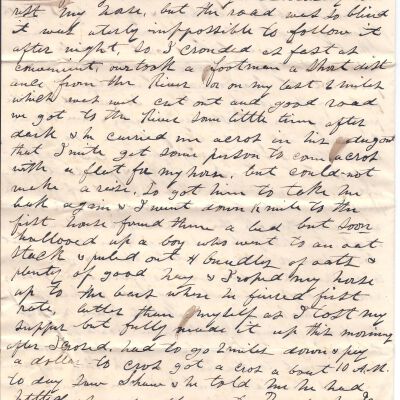 rest my horse, but the road was so blind
it was uterly imppossible to follow it
after night, so I crouded as fast as
convenient, overtook a footman a short dist
ance from the River for on my last 2 miles
which was wel cut out and good road
we got to the River some little time after
dark & he carried me acros in his dugout
that I mite get some person to come acros
with a flat for my horse, but could not
make a raise, So got him to take me
back again & I went down ½ mile to the
first house found there a bed but soon
hallooed up a boy who went to an oat
stack & puled out 4 bundles of oats &
plenty of good hay & I roped my horse
up to the best when he fared first
rate, better than myself as I lost my
supper but fully made it up this morning
after I crosed, had to go 2 miles down & pay
a dollar to cros got a cros a bout 10 A.M.
to day Saw Shaw & he told me he had